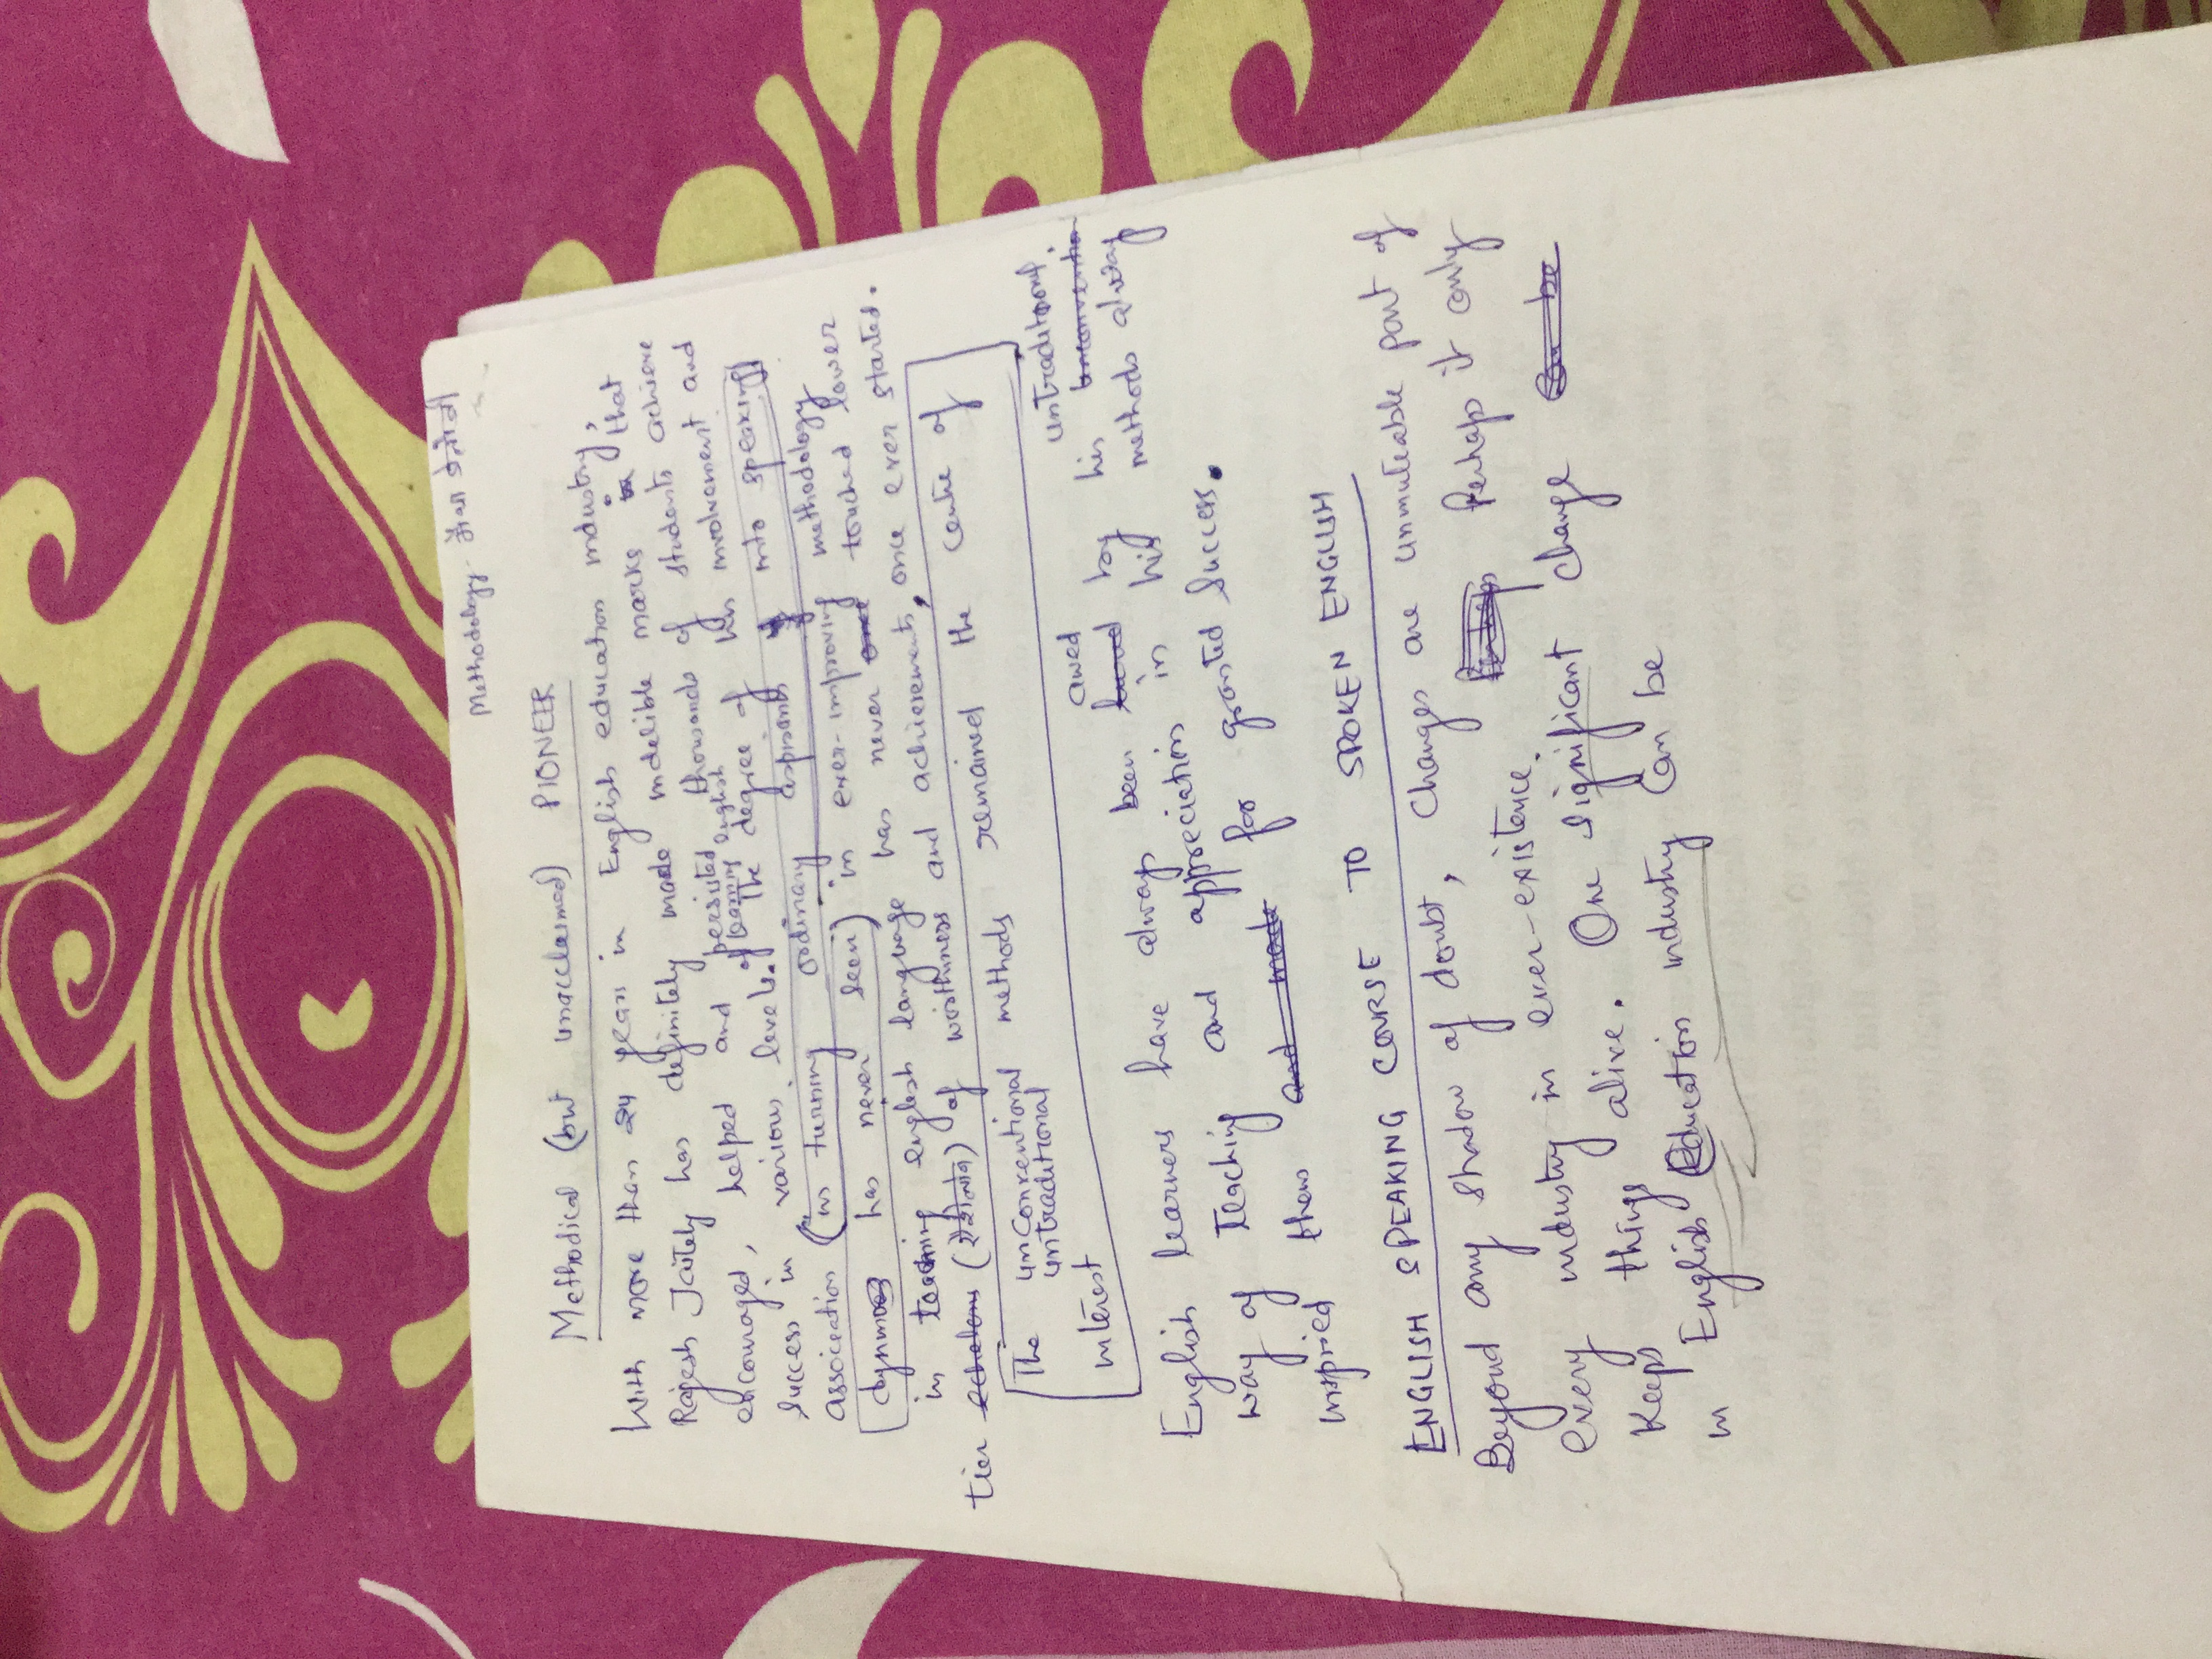 Methodology - मैथा डेलोजी
Methodical (but unacclaimed) PIONEER
With more than 24 years in English education industry,
Rajesh Jaitely has definitely made indelible marks in that
encouraged, helped and persisted thousands of students achieve
of learning english
success in various levels. The degree of his involvement and
association (in turning ordinary aspirants into speaking
has never seen) in ever-improving methodology
in teaching english language has never once touched lower
tier echelons of worthiness and achievements, once ever started.
The unconventional methods remained the centre of
untraditional
interest
awed untraditional
English learners have always been by his unconvention
way of teaching and appreciation in his methods alway
inspried them and made for granted success.
ENGLISH SPEAKING COURSE TO SPOKEN ENGLISH
Beyond any shadow of doubt, Changes are unmuteable part of
every industry in ever-existence. Perhaps Perhaps it only
keeps things alive. One significant change can be
in English Education industry can be